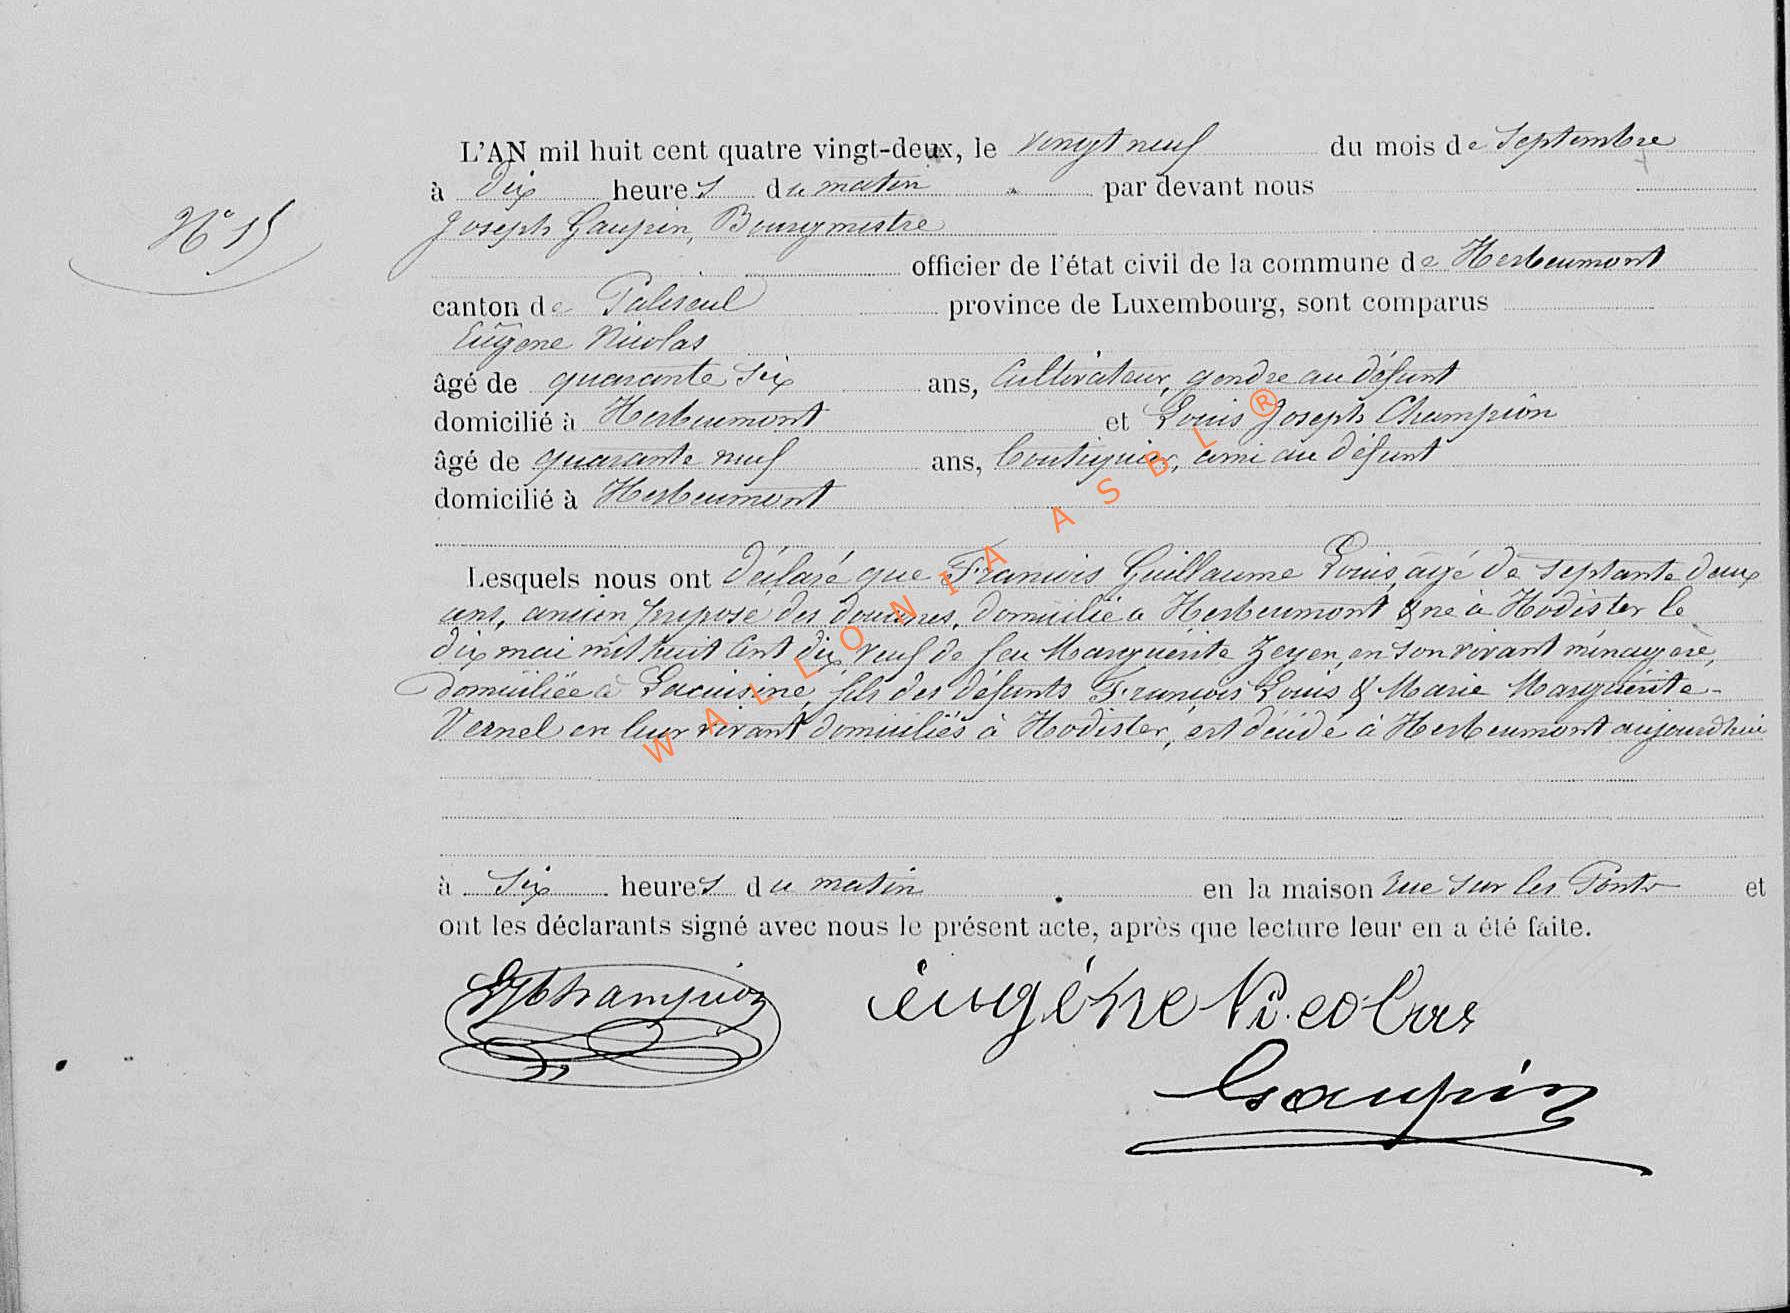 L'AN mil huit cent quatre vingt-deux, le vingt neuf du mois de Septembre
à dix heures du matin par devant nous
N° 15
Joseph Gaupin, Bourgmestre
officier de l'état civil de la commune de Herbeumont
canton de Paliseul province de Luxembourg, sont comparus
Eugène Nicolas
âgé de quarante six ans, Cultivateur, gendre au défunt
domicilié à Herbeumont et Louis Joseph Champion
âgé de quarante neuf ans, boutiquier, ami au défunt
domicilié à Herbeumont
Lesquels nous ont déclaré que François Guillaume Louis, agé de septante deux
ans, ancien préposé des douanes, domicilié à Herbeumont & né à Hodister le
dix mai mil huit cent dix veuf de feu Marguérite Zeyen, en son vivant ménagère,
domiciliée à Lacuisine, fils des défunts François Louis & Marie Marguérite-
Vernel en leur vivant domiciliés à Hodister, est décédé à Herbeumont aujourd'hui
à six heures du matin en la maison rue sur les Ponts et
ont les déclarants signé avec nous le présent acte, après que lecture leur en a été faite.
LJChampion eugéne Nicolas
Gaupin
WALLONIA ASBL ®